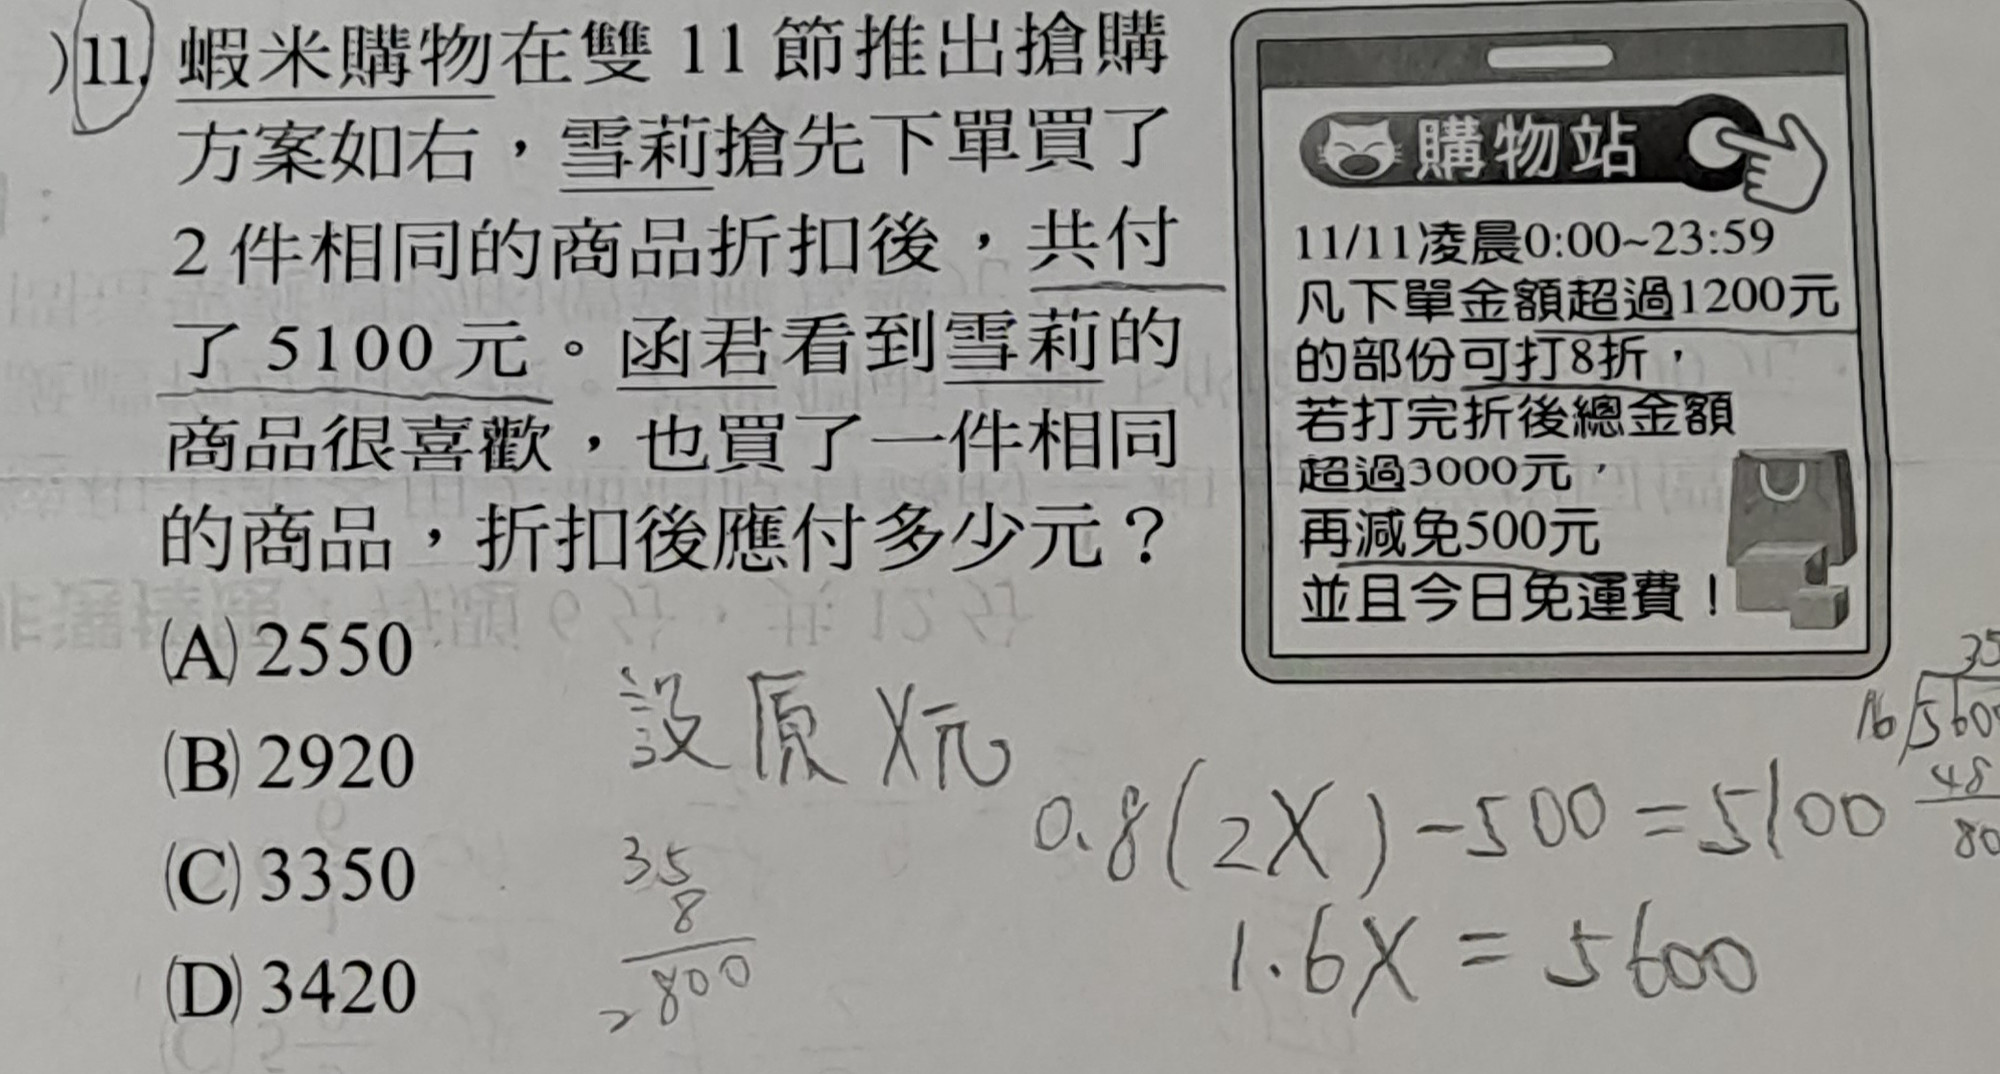 )11. 蝦米購物在雙 11 節推出搶購
方案如右，雪莉搶先下單買了
2 件相同的商品折扣後，共付
了 5100 元。函君看到雪莉的
商品很喜歡，也買了一件相同
的商品，折扣後應付多少元？
(A) 2550
(B) 2920
(C) 3350
(D) 3420
購物站
11/11凌晨0:00~23:59
凡下單金額超過1200元
的部份可打8折，
若打完折後總金額
超過3000元，
再減免500元
並且今日免運費！
設原X元
0.8(2X)-500=5100
1.6X=5600
35
8
2800
35
16
560
48
80